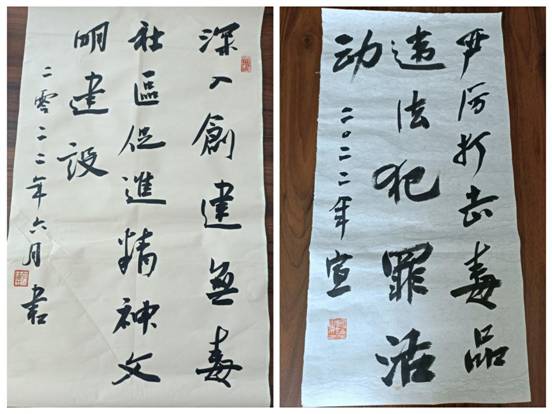 深入創建無毒
社區促進精神文
明建设
二零二二年六月
書
严厉打击毒品
违法犯罪活
动
二〇二二年宣